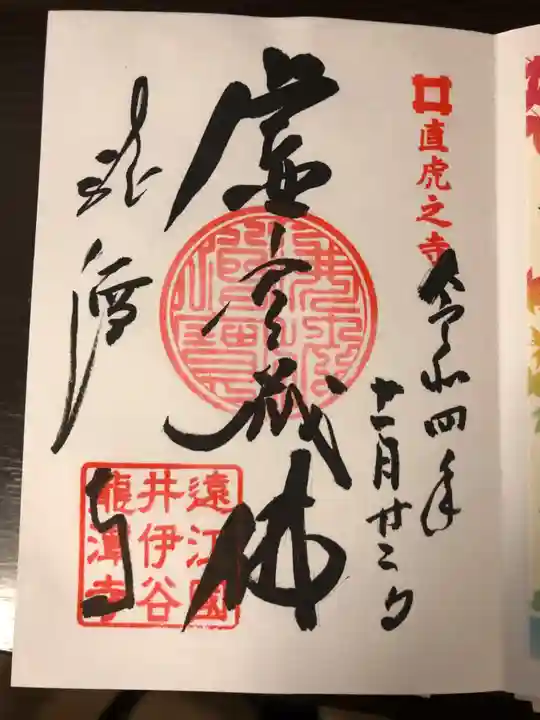 直虎之寺
令和四年
十一月廿三日
虚空蔵佛
龍潭寺
遠江國
井伊谷
龍潭寺